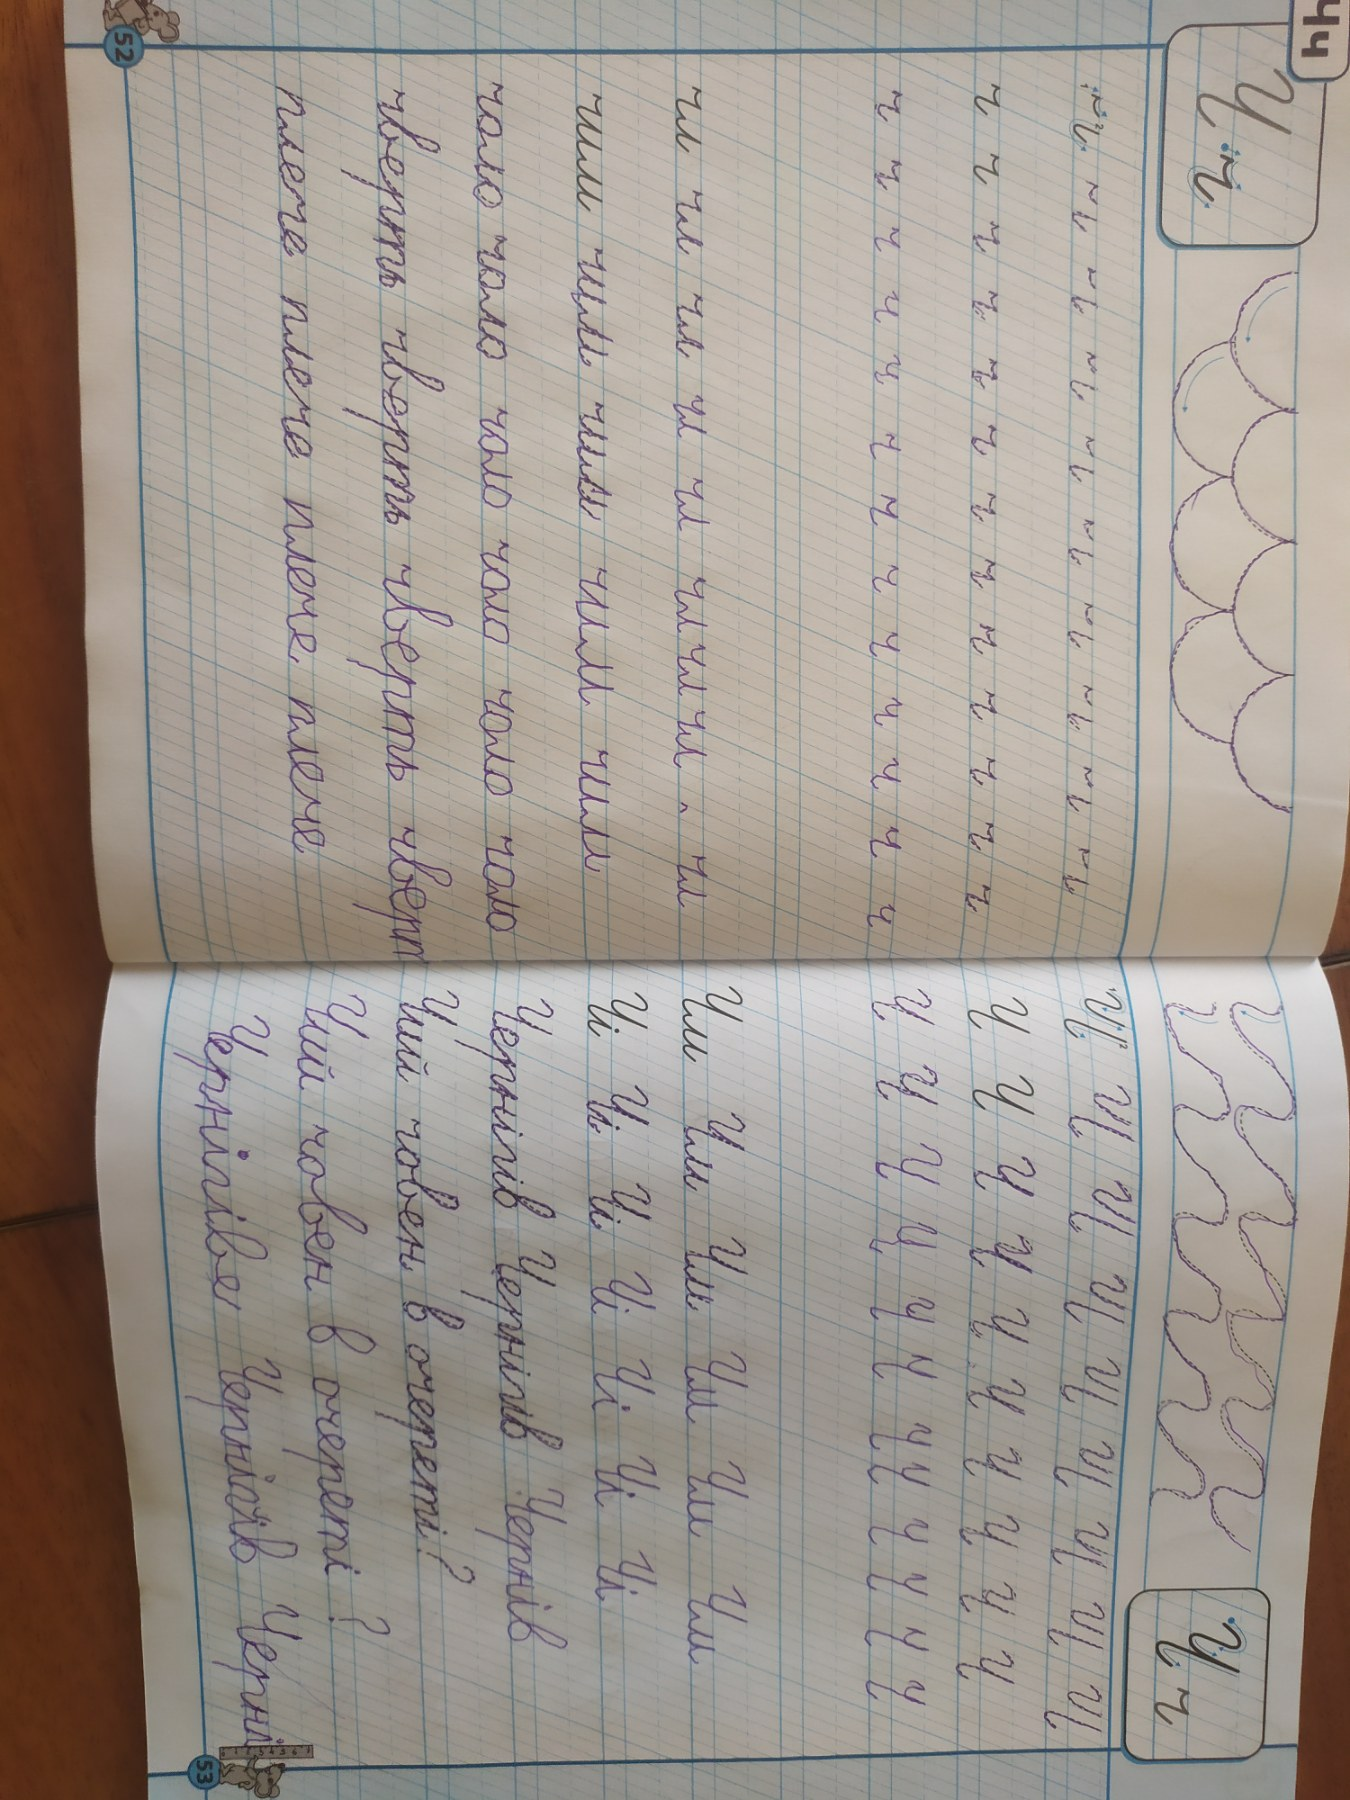 Чч
Ч ч
ч ч ч ч ч ч ч ч ч ч ч ч ч
ч ч ч ч ч ч ч ч ч ч ч ч ч
чи чи чи чи чи чи чи чи чи
чим чим чим чим чим
чоло чоло чоло чоло чоло чоло
чверть чверть чверть чверт
плече плече плече плече
52
Ч ч
Ч Ч Ч Ч Ч Ч Ч Ч Ч Ч
Ч Ч Ч Ч Ч Ч Ч Ч Ч Ч
Чи Чи Чи Чи Чи Чи
Чі Чі Чі Чі Чі Чі Чі
Чернігів Чернігів Чернів
Чий човен в очереті?
Чий човен в очереті ?
Чернігів Чернігів Черні
53